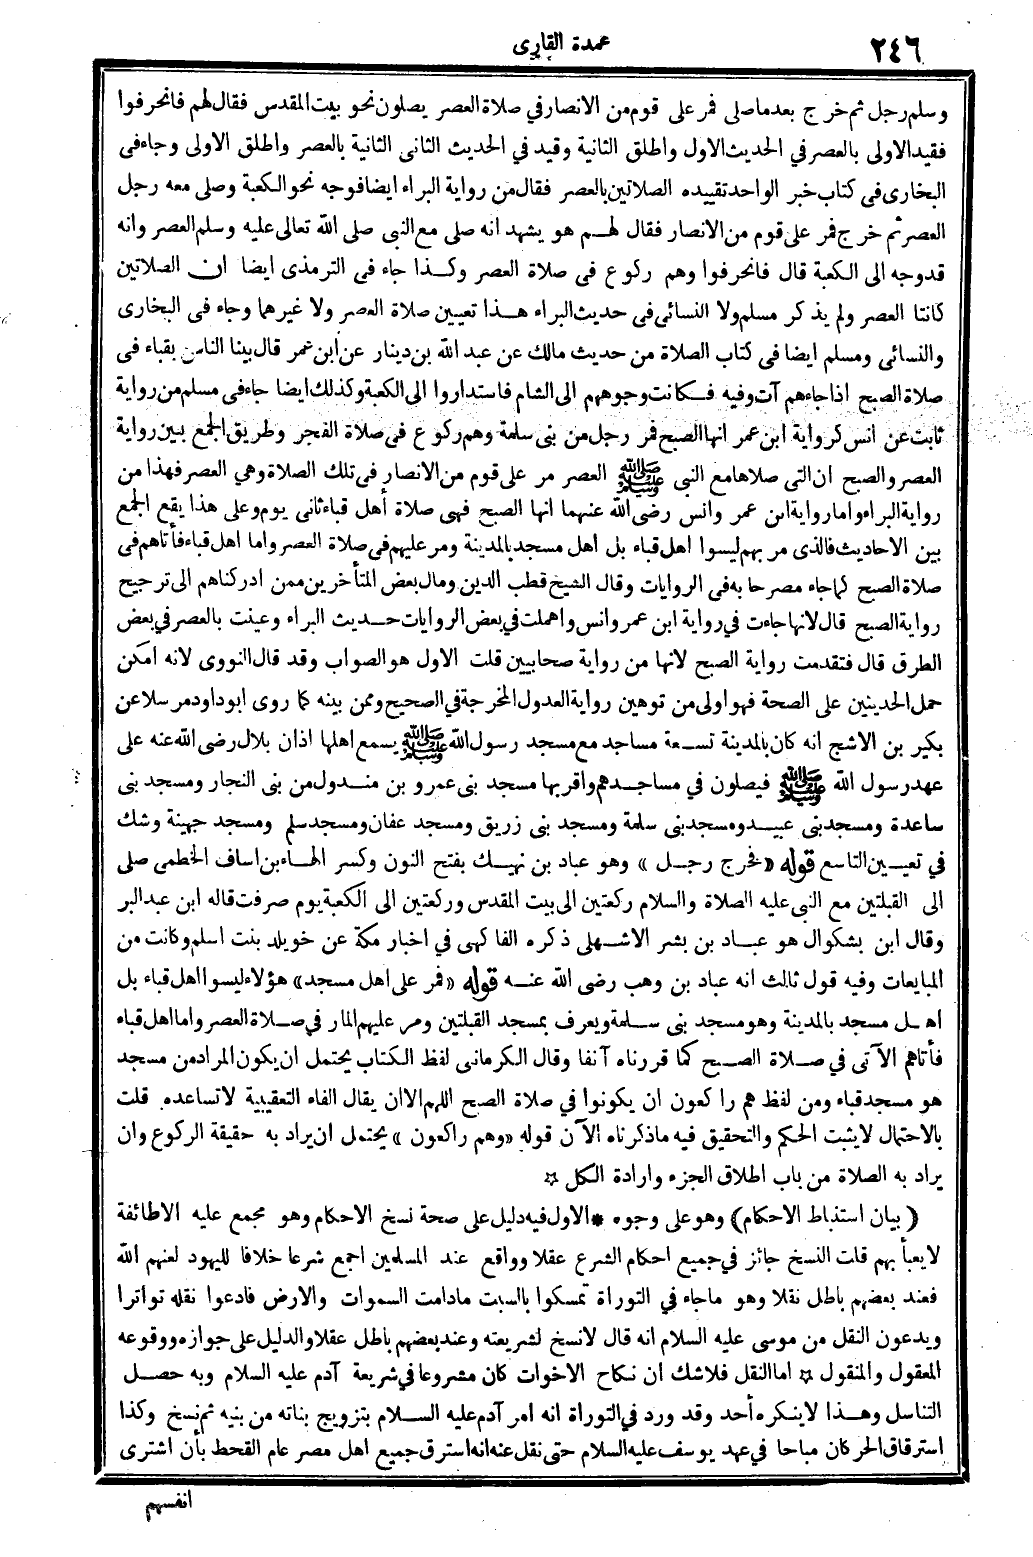 ٢٤٦
عمدة القارى
وسلم رجل ثم خرج بعدما صلى فمر على قوم من الانصار في صلاة العصر يصلون نحو بيت المقدس فقال لهم فانحرفوا
فقيد الاولى بالعصر في الحديث الاول واطلق الثانية وقيد في الحديث الثانى الثانية بالعصر واطلق الاولى وجاء فى
البخارى فى كتاب خبر الواحد تقييده الصلاتين بالعصر فقال من رواية البراء ايضا فوجه نحو الكعبة وصلى معه رجل
العصر ثم خرج فمر على قوم من الانصار فقال لهم هو يشهد انه صلى مع النبى صلى الله تعالى عليه وسلم العصر وانه
قد وجه الى الكعبة قال فانحرفوا وهم ركوع فى صلاة العصر وكذا جاء فى الترمذى ايضا ان الصلاتين
كانتا العصر ولم يذكر مسلم ولا النسائى فى حديث البراء هذا تعيين صلاة العصر ولا غيرها وجاء فى البخارى
والنسائى ومسلم ايضا فى كتاب الصلاة من حديث مالك عن عبد الله بن دينار عن ابن عمر قال بينا الناس بقباء فى
صلاة الصبح اذا جاءهم آت وفيه فكانت وجوههم الى الشام فاستداروا الى الكعبة وكذلك ايضا جاء فى مسلم من رواية
ثابت عن انس كرواية ابن عمر انها الصبح فمر رجل من بنى سلمة وهم ركوع فى صلاة الفجر وطريق الجمع بين رواية
العصر والصبح ان التى صلاها مع النبى ﷺ العصر مر على قوم من الانصار فى تلك الصلاة وهي العصر فهذا من
رواية البراء واما رواية ابن عمر وانس رضى الله عنهما انها الصبح فهى صلاة أهل قباء ثانى يوم وعلى هذا يقع الجمع
بين الاحاديث فالذى مر بهم ليسوا اهل قباء بل أهل مسجد بالمدينة ومر عليهم فى صلاة العصر واما اهل قباء فأتاهم فى
صلاة الصبح كما جاء مصرحا به فى الروايات وقال الشيخ قطب الدين ومال بعض المتأخرين ممن ادركناهم الى ترجيح
رواية الصبح قال لانها جاءت في رواية ابن عمر وانس واهملت في بعض الروايات حديث البراء وعينت بالعصر في بعض
الطرق قال فتقدمت رواية الصبح لانها من رواية صحابيين قلت الاول هو الصواب وقد قال النووى لانه امكن
حمل الحديثين على الصحة فهو اولى من توهين رواية العدول المخرجة في الصحيح وممن بينه كما روى ابو داود مرسلا عن
بكير بن الاشج انه كان بالمدينة تسعة مساجد مع مسجد رسول الله ﷺ يسمع اهلها اذان بلال رضى الله عنه على
عهد رسول الله ﷺ فيصلون في مساجدهم واقربها مسجد بنى عمرو بن مندول من بنى النجار ومسجد بنى
ساعدة ومسجد بنى عبيد ومسجد بنى سلمة ومسجد بنى زريق ومسجد عفان ومسجد سلم ومسجد جهينة وشك
في تعيين التاسع قوله «فخرج رجل» وهو عباد بن نهيك بفتح النون وكسر الهاء بن اساف الخطمى صلى
الى القبلتين مع النبى عليه الصلاة والسلام ركعتين الى بيت المقدس وركعتين الى الكعبة يوم صرفت قاله ابن عبد البر
وقال ابن بشكوال هو عباد بن بشر الاشهلى ذكره الفاكهى في اخبار مكة عن خويلد بنت اسلم وكانت من
المبايعات وفيه قول ثالث انه عباد بن وهب رضى الله عنه قوله «فمر على اهل مسجد» هؤلاء ليسوا اهل قباء بل
اهل مسجد بالمدينة وهو مسجد بنى سلمة ويعرف بمسجد القبلتين ومر عليهم المار في صلاة العصر واما اهل قباء
فأتاهم الآتى في صلاة الصبح كما قررناه آنفا وقال الكرمانى لفظ الكتاب يحتمل ان يكون المراد من مسجد
هو مسجد قباء ومن لفظ هم راكعون ان يكونوا في صلاة الصبح اللهم الا ان يقال الفاء التعقيبية لا تساعده. قلت
بالاحتمال لا يثبت الحكم والتحقيق فيه ما ذكرناه الآن قوله «وهم راكعون» يحتمل ان يراد به حقيقة الركوع وان
يراد به الصلاة من باب اطلاق الجزء وارادة الكل ☆
(بيان استنباط الاحكام) وهو على وجوه * الاول فيه دليل على صحة نسخ الاحكام وهو مجمع عليه الا طائفة
لا يعبأ بهم قلت النسخ جائز في جميع احكام الشرع عقلا وواقع عند المسلمين اجمع شرعا خلافا لليهود لعنهم الله
فعند بعضهم باطل نقلا وهو ما جاء في التوراة تمسكوا بالسبت مادامت السموات والارض فادعوا نقله تواترا
ويدعون النقل من موسى عليه السلام انه قال لا نسخ لشريعته وعند بعضهم باطل عقلا والدليل على جوازه ووقوعه
المعقول والمنقول ☆ اما النقل فلا شك ان نكاح الاخوات كان مشروعا في شريعة آدم عليه السلام وبه حصل
التناسل وهذا لا ينكره أحد وقد ورد في التوراة انه امر آدم عليه السلام بتزويج بناته من بنيه ثم نسخ وكذا
استرقاق الحر كان مباحا في عهد يوسف عليه السلام حتى نقل عنه انه استرق جميع اهل مصر عام القحط بأن اشترى
انفسهم